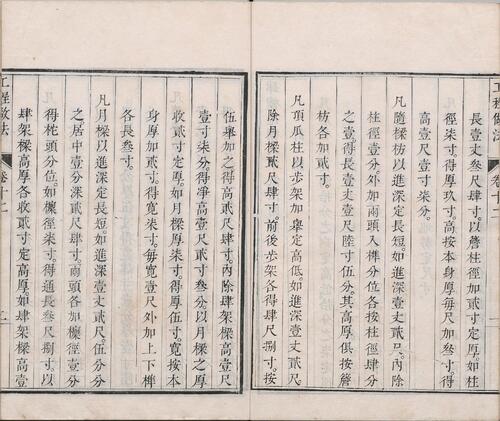 工程做法 卷十二 一
長壹丈叁尺肆寸以簷柱徑定厚如柱
徑柒寸。得厚玖寸。高按本身厚每尺加叁寸。得
高壹尺壹寸柒分。
凡隨樑枋以進深定長短。如進深壹丈貳尺。內除
柱徑壹分。外加兩頭入榫分位各按柱徑肆分
之壹。得長壹丈壹尺陸寸伍分。其高厚俱按簷
枋各加貳寸。
凡頂瓜柱以步架加舉定高低。如進深壹丈貳尺。
除月樑貳尺肆寸。前後步架各得肆尺捌寸。按
伍舉加之得高貳尺肆寸。內除肆架樑高壹尺
壹寸柒分。得淨高壹尺貳寸叁分。以月樑之厚
收貳寸定厚。如月樑厚柒寸。得厚伍寸。寬按本
身厚加貳寸。得寬柒寸。每寬壹尺外加上下榫
各長叁寸。
凡月樑以進深定長短。如進深壹丈貳尺。伍分分
之居中壹分深貳尺肆寸。兩頭各加檁徑壹分
得柁頭分位。如檁徑柒寸。得通長叁尺捌寸。以
肆架樑高厚各收貳寸定高厚。如肆架樑高壹
工程做法 卷十二 二